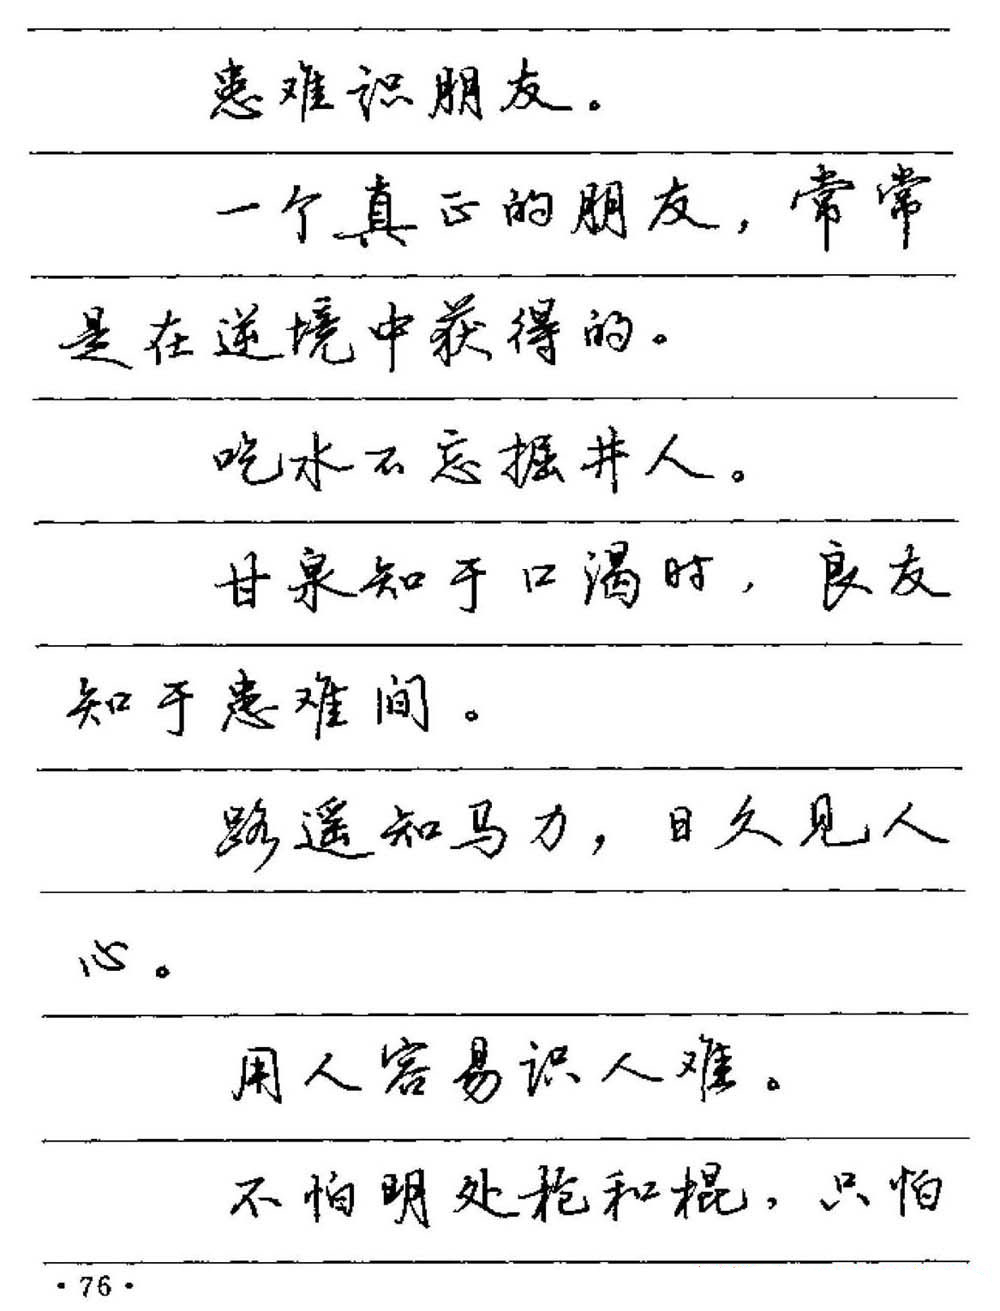 患难识朋友。
一个真正的朋友,常常
是在逆境中获得的。
吃水不忘掘井人。
甘泉知于口渴时,良友
知于患难间。
路遥知马力,日久见人
心。
用人容易识人难。
不怕明处枪和棍,只怕
·76·